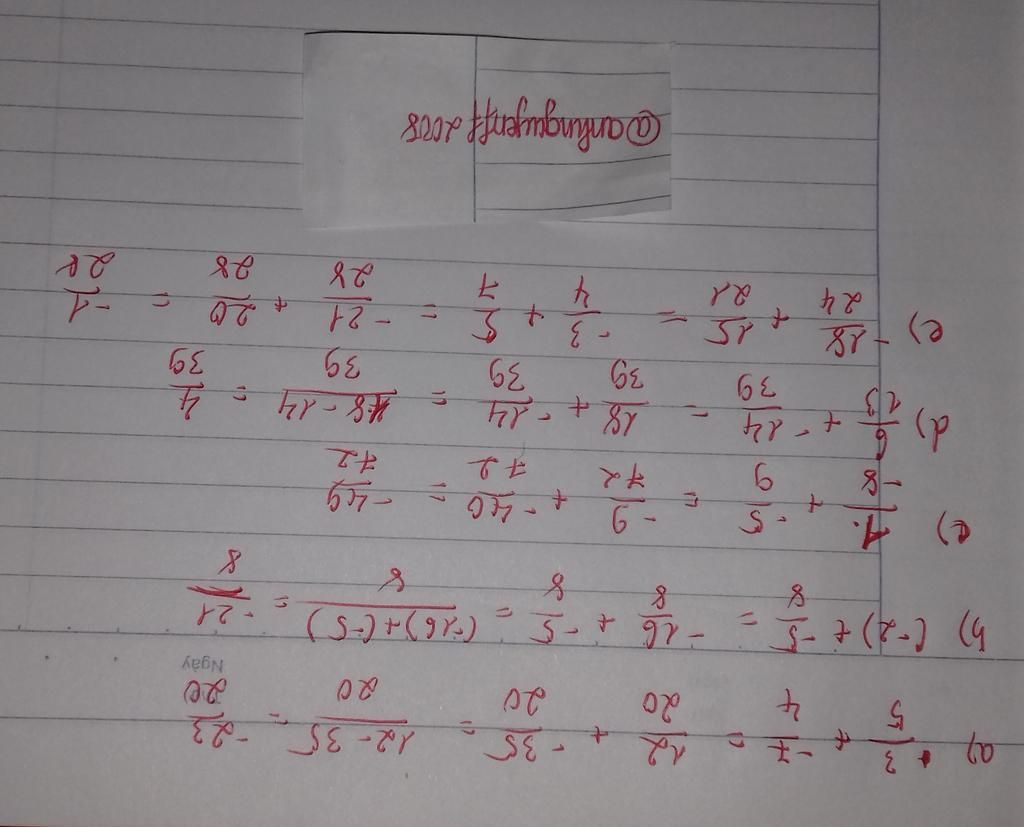 a) 3/5 + -7/4 = 12/20 + -35/20 = 12-35/20 = -23/20
Ngày
b) (-2) + -5/8 = -16/8 + -5/8 = (-16)+(-5)/8 = -21/8
c) 1/-8 + -5/9 = -9/72 + -40/72 = -49/72
d) 6/13 + -14/39 = 18/39 + -14/39 = 18-14/39 = 4/39
e) -18/24 + 15/21 = -3/4 + 5/7 = -21/28 + 20/28 = -1/28
@anhnguyenff2008